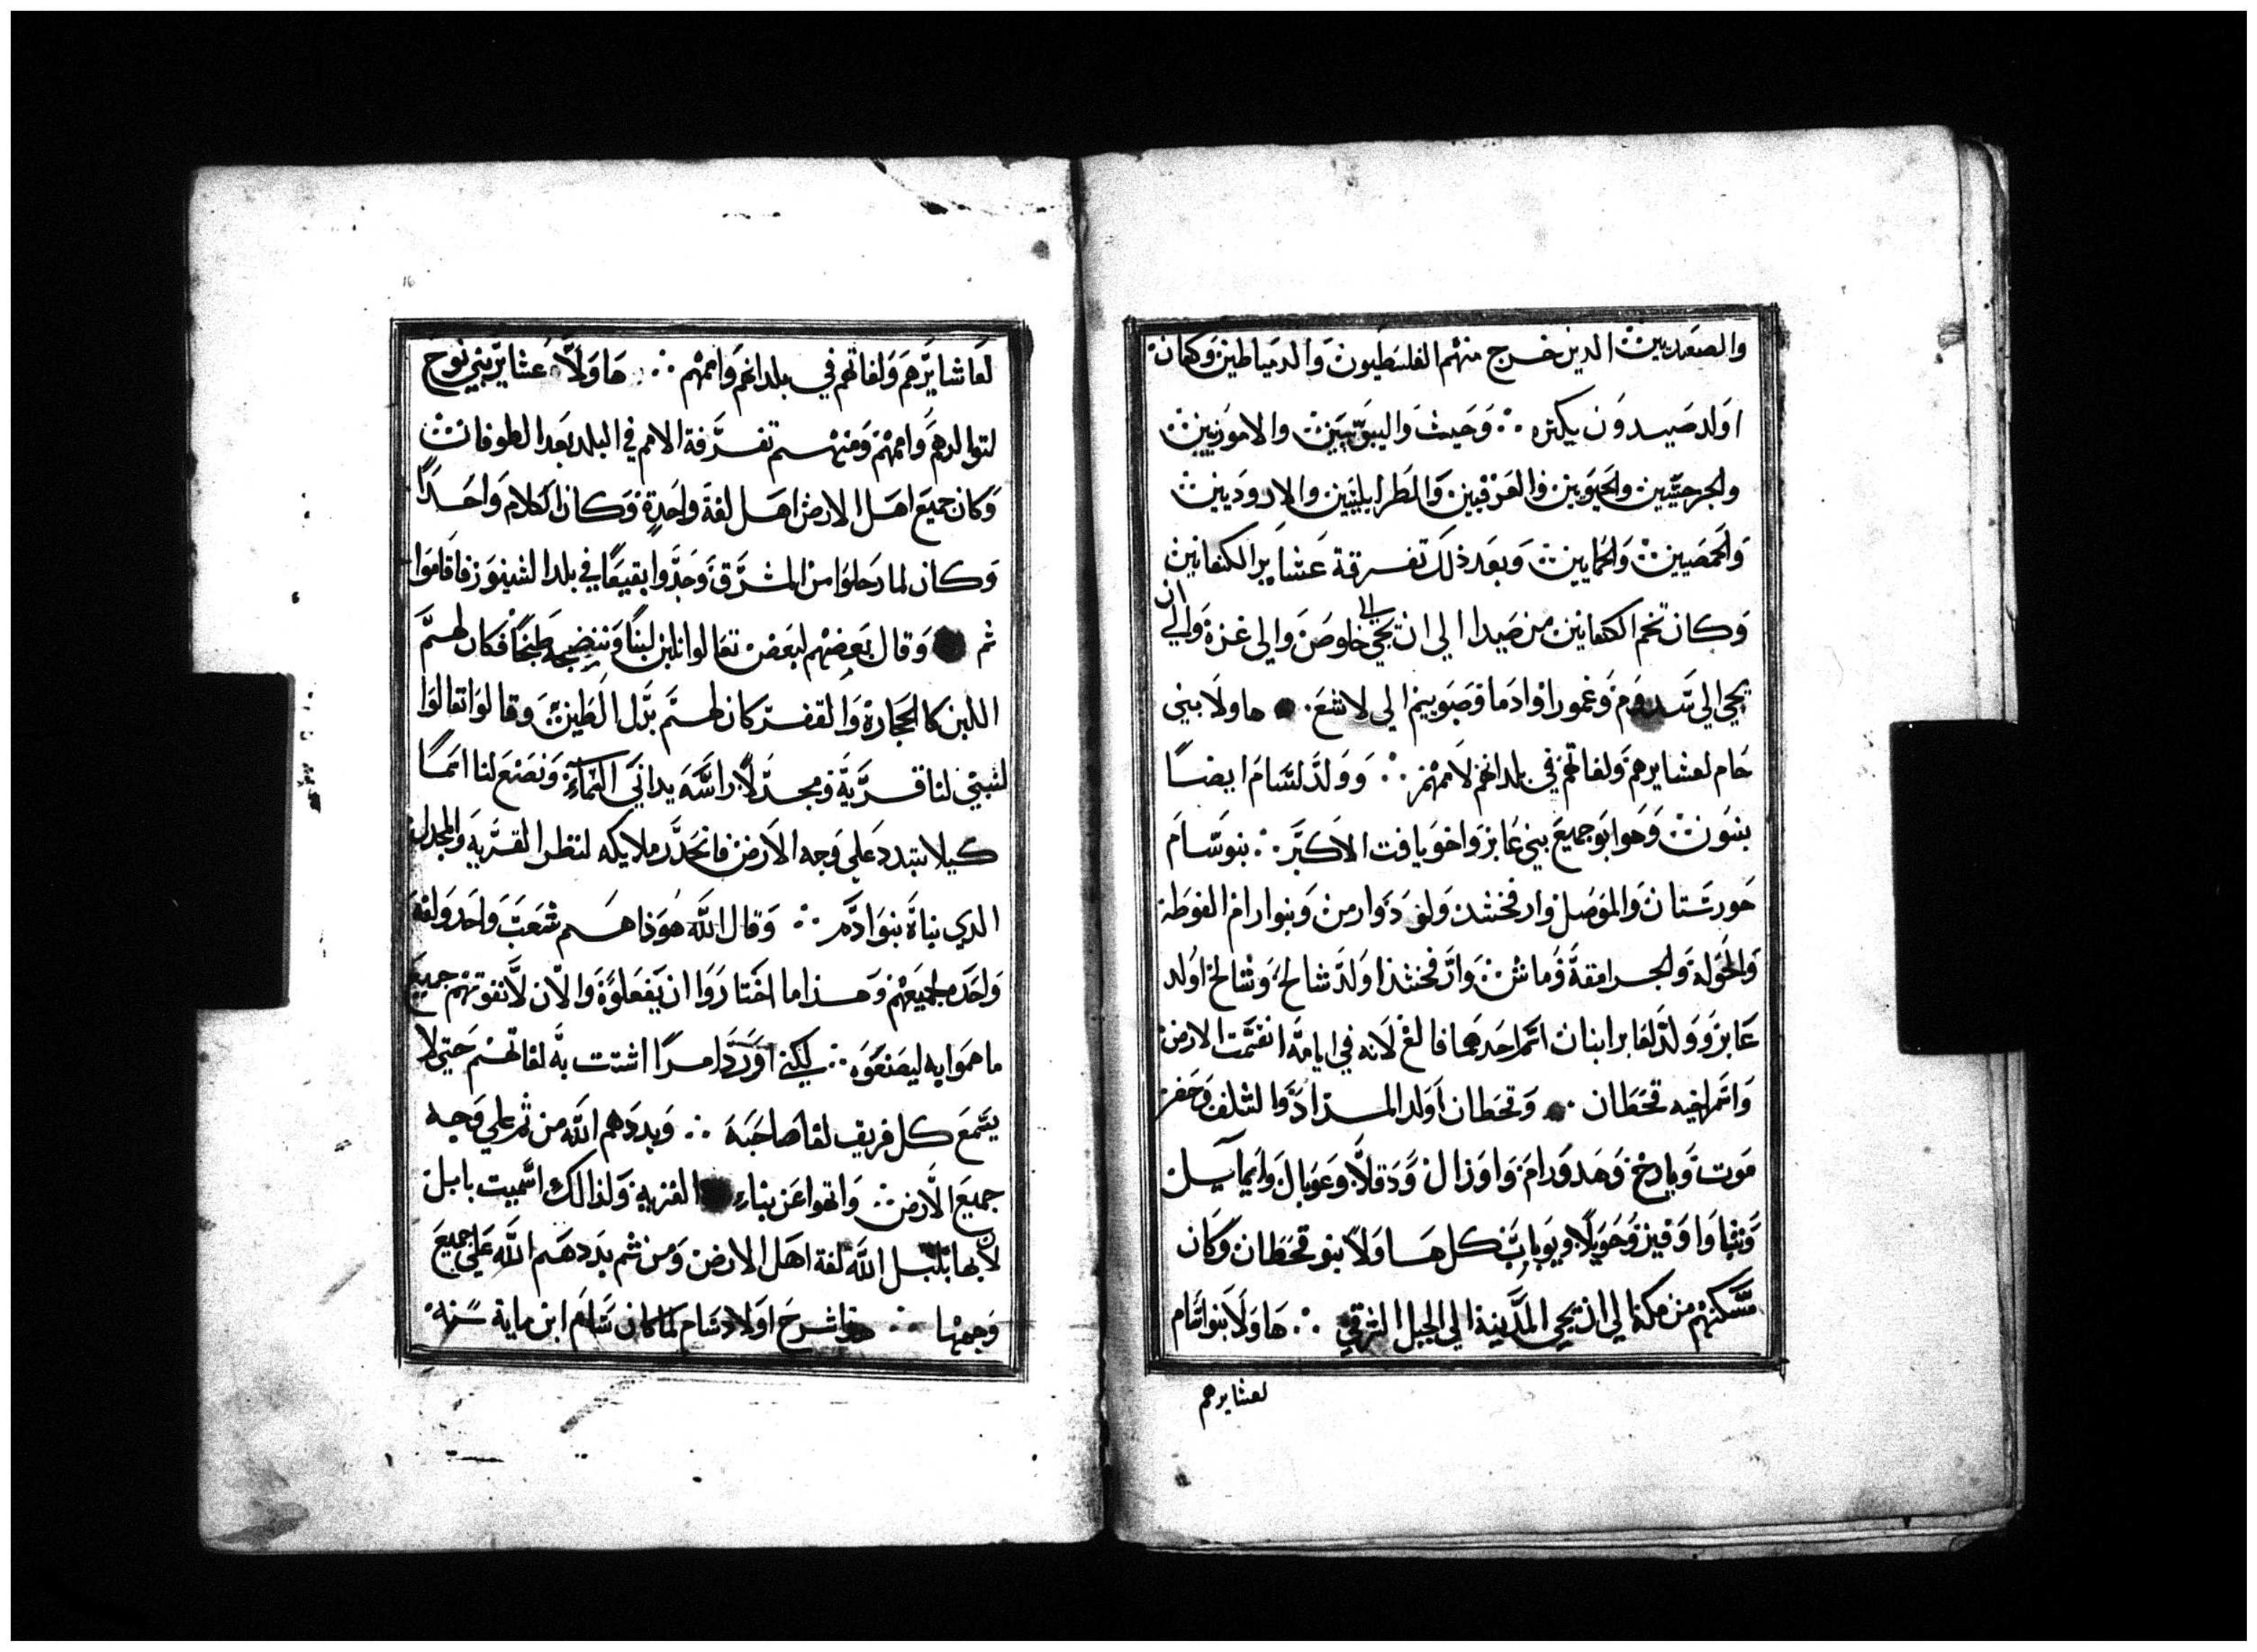 والصعديين الدين خرج منهم الفلسطيون والدمياطين وكان
اولد صيدون بكره ∴ وحيث واليبوسيين والاموريين
والجرحيين والحيويين والعرقيين والطرابلسيين والاروديين
والحمصيين والحمايين وبعد ذلك تفرقة عشاير الكنعانيين
وكان تخم الكنعانين من صيدا الي ان تجي الي خلوص والي غزة والي ان
يجي الي سدوم وغمورا وادما وصبوييم الي لاشع ∴ هاولا بني
حام لعشايرهم ولغاتهم في بلدانهم لاممهم ∴ وولد لسام ايضا
بنون وهوا ابو جميع بني عابر واخو يافت الاكبر ∴ بنو سام
خورستان والموصل وارفخشد ولود وارمن وبنوا رام الغوطه
والحوله والجرامقة وماش وارفخشدا ولد شالح وشالخ اولد
عابر وولد لعابر ابنان اسم احدهما فالغ لانه في ايامه انقسمت الارض
واسم اخيه قحطان ∴ وقحطان اولد المرادد والشلف وحضر
موت ويارخ وهدورام واوزال ودقلا وعوبال وايمايل
وشبا واوفير وحويلا ويوباب كل هاولا بنو قحطان وكان
مسكنهم من مكة الي ان يجي المدينة الي الجبل الشرقي ∴ هاولا بنوا سام
لعشايرهم
لعاشايرهم ولغاتهم في بلدانهم واممهم ∴ هاولا عشاير بني نوح
لتوالدهم واممهم ومنهم تفرقة الامم في البلد بعد الطوفان
وكان جميع اهل الارض اهل لغة واحدة وكان الكلام واحدا
وكان لما رحلوا من المشرق وجدوا بقيعا في بلد الشينور فاقاموا
ثم وقال بعضهم لبعض تعالوا نلبن لبنا وننضجه طبخا فكان لهم
اللبن كالحجارة والقفر كان لهم بدل الطين وقالوا تعالوا
لنبتني لنا قرية ومجدلا راسه يداني السماء ونصنع لنا اسما
كيلا نتبدد علي وجه الارض فانحدر ملايكه لتظر القرية والمجدل
الدي بناة بنوا ادم ∴ وقال الله هوذا هم شعب واحد ولغة
واحدة لجميعهم وهذا ما اختاروا ان يفعلوة والان لا نفوتهم جميع
ما هموا به ليصنعوه ∴ لكني اورد امرا اشتت به لغاتهم حتي لا
يسمع كل فريق لغا صاحبه ∴ وبددهم الله من ثم علي وجه
جميع الارض وانتهوا عن بناء القريه ولذالك اسميت بابل
لان بها بلبل الله لغة اهل الارض ومن ثم بددهم الله علي جميع
وجهها ∴ هذا شرح اولاد سام لما كان سام ابن ماية سنه